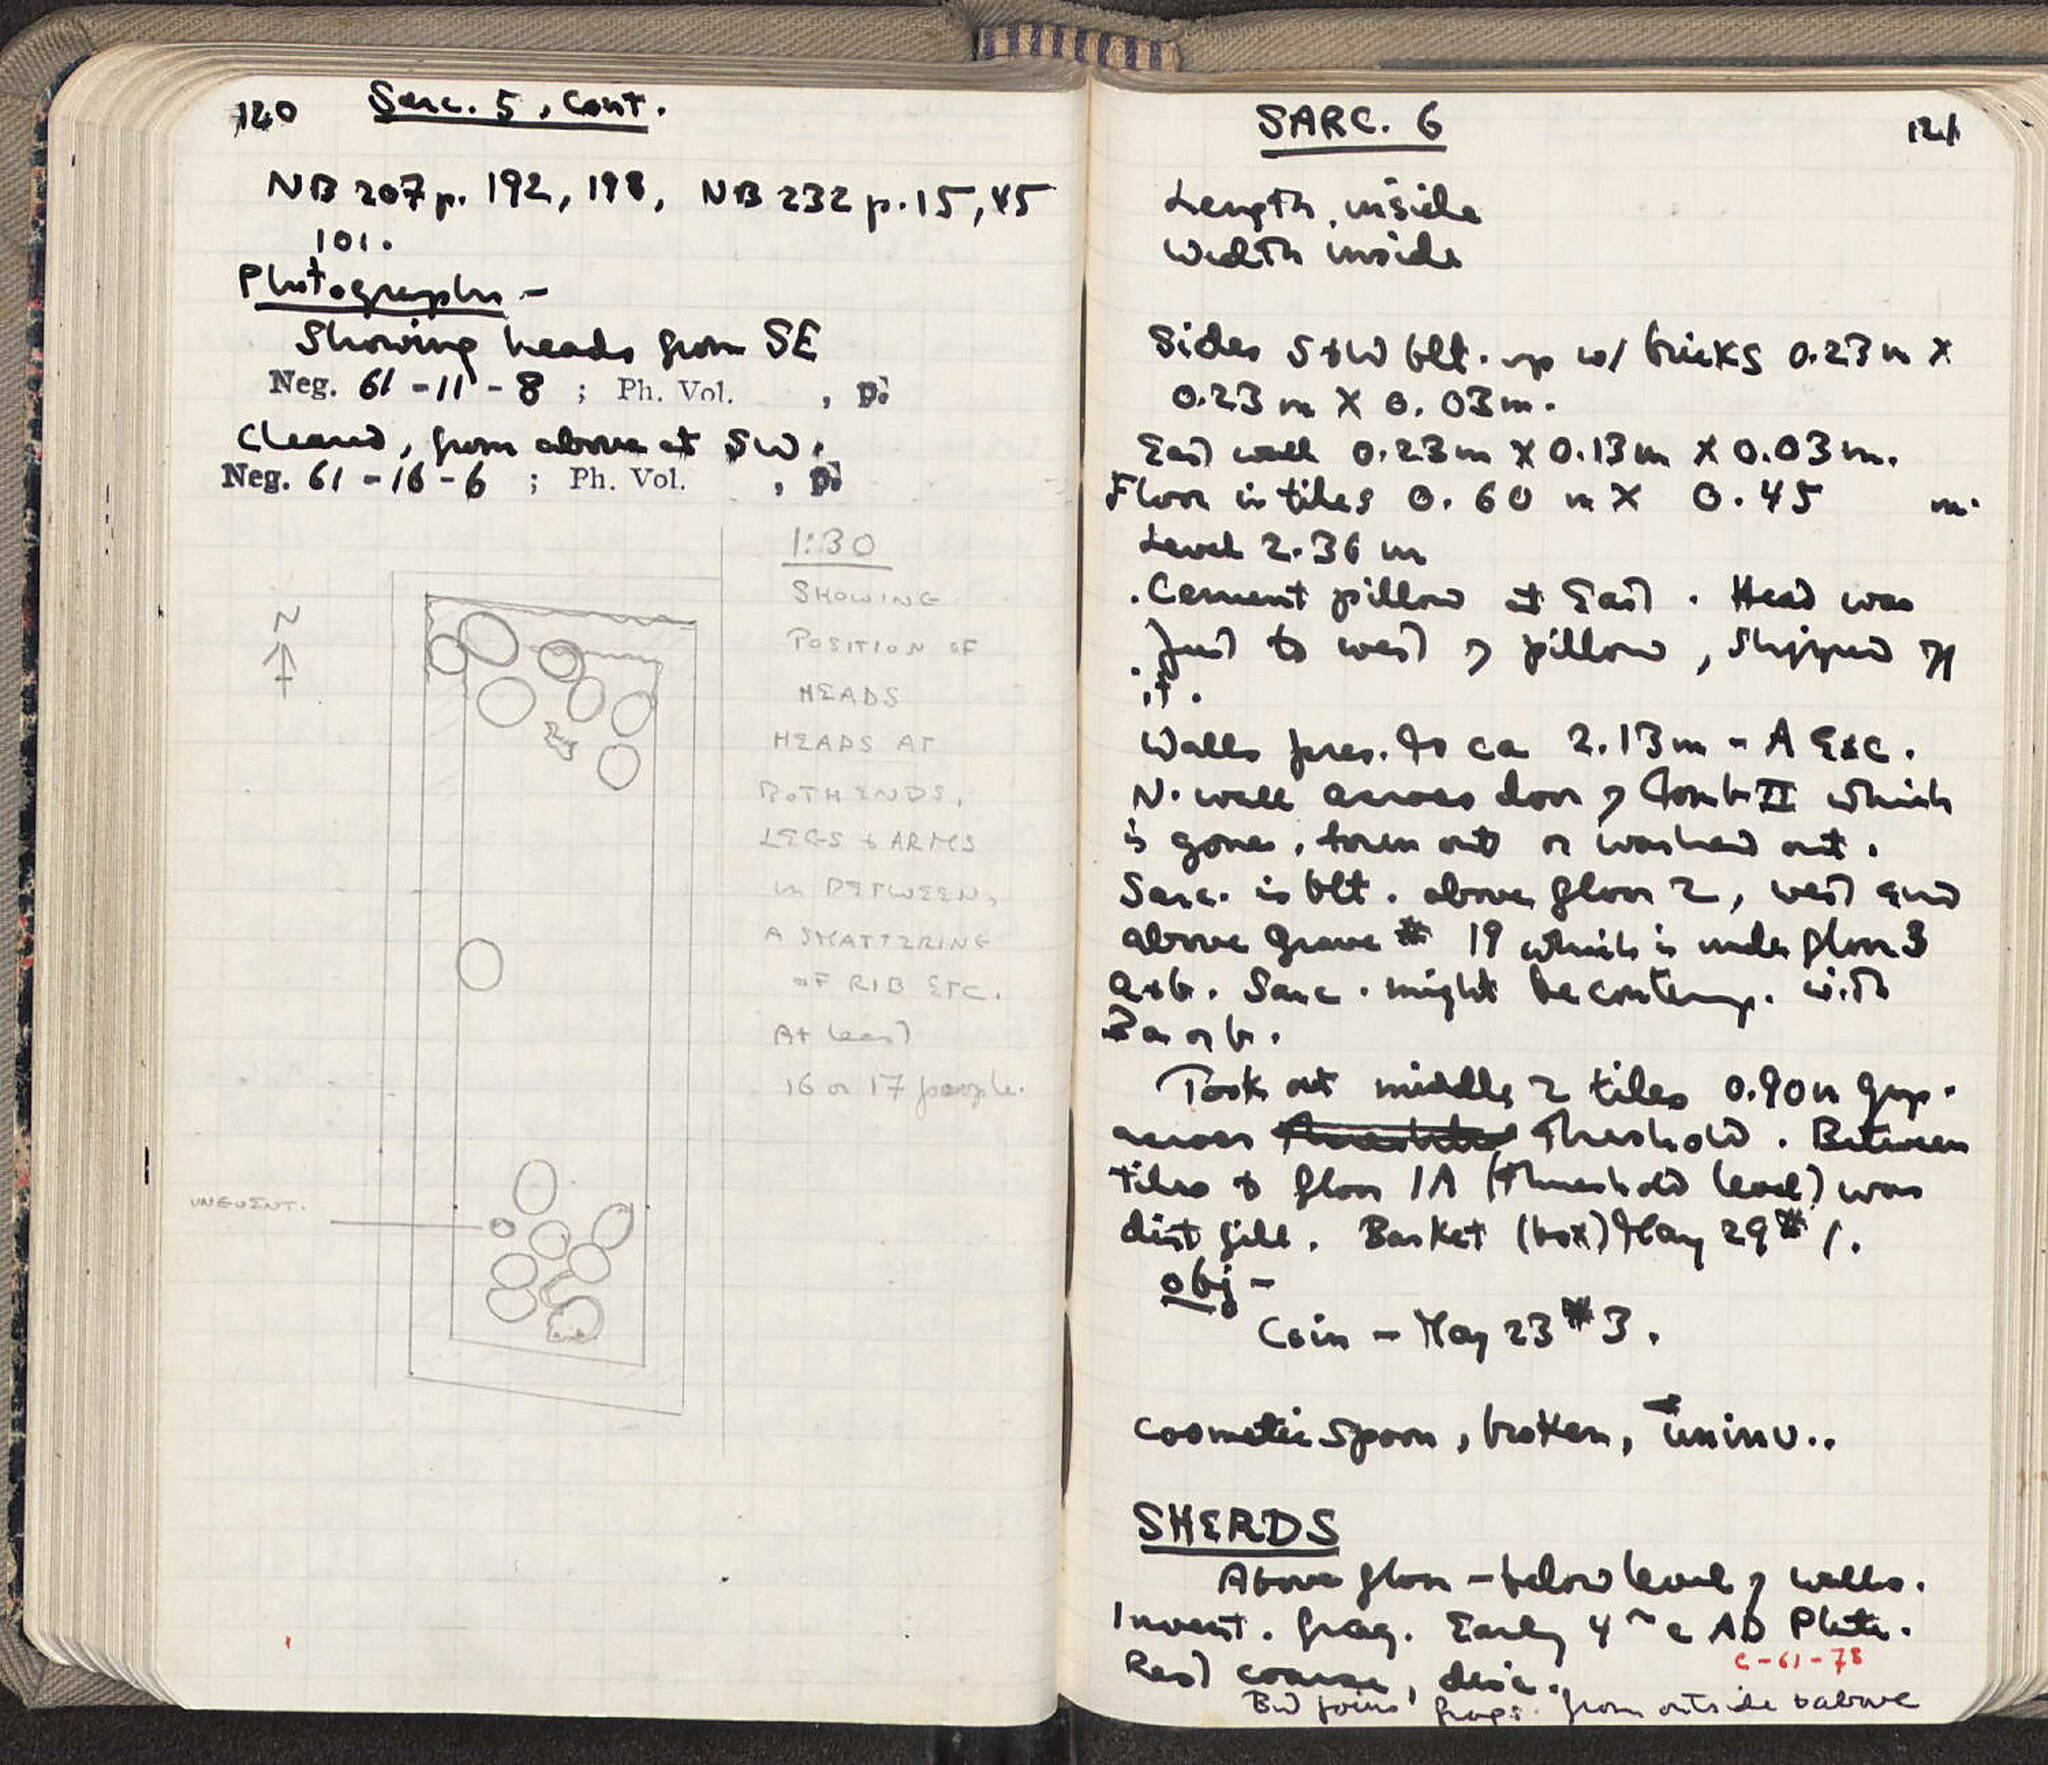 120 Sarc. 5, Cont.
NB 207 p. 192, 198, NB 232 p. 15, 45
101.
Photographs -
Showing heads from SE
Neg. 61 - 11 - 8 ; Ph. Vol. , p.
Cleared, from above at SW.
Neg. 61 - 16 - 6 ; Ph. Vol. , p.
1:30
SHOWING
POSITION OF
HEADS
HEADS AT
BOTH ENDS,
LEGS & ARMS
IN BETWEEN,
A SMATTERING
OF RIB ETC.
At least
16 or 17 people.
N
UNGUENT.
SARC. 6 121
Length, inside
Width inside
Sides S & W blt. up w/ bricks 0.23 m X
0.23 m X 0.03 m.
East wall 0.23 m X 0.13 m X 0.03 m.
Floor in tiles 0.60 m X 0.45 m.
Level 2.36 m
Cement pillow at East. Head was
just to west of pillow, slipped off
it.
Walls pres. to ca 2.13 m - A Exc.
N. wall across door of Tomb II which
is gone, torn out or washed out.
Sarc. is blt. above floor 2, west and
above Grave # 19 which is under floor 3
a & b. Sarc. might be contemp. with
3a or b.
Took out middle 2 tiles 0.90 m gap.
across threshold. Between
tiles & floor 1A (threshold level) was
dirt fill. Basket (box) May 29 # 1.
Obj -
Coin - May 23 # 3.
Cosmetic spoon, broken, uninv..
SHERDS
Above floor - below level of walls.
Invent. frag. Early 4th c AD Plate.
C-61-78
Rest coarse, disc.
But joins frags. from outside & above